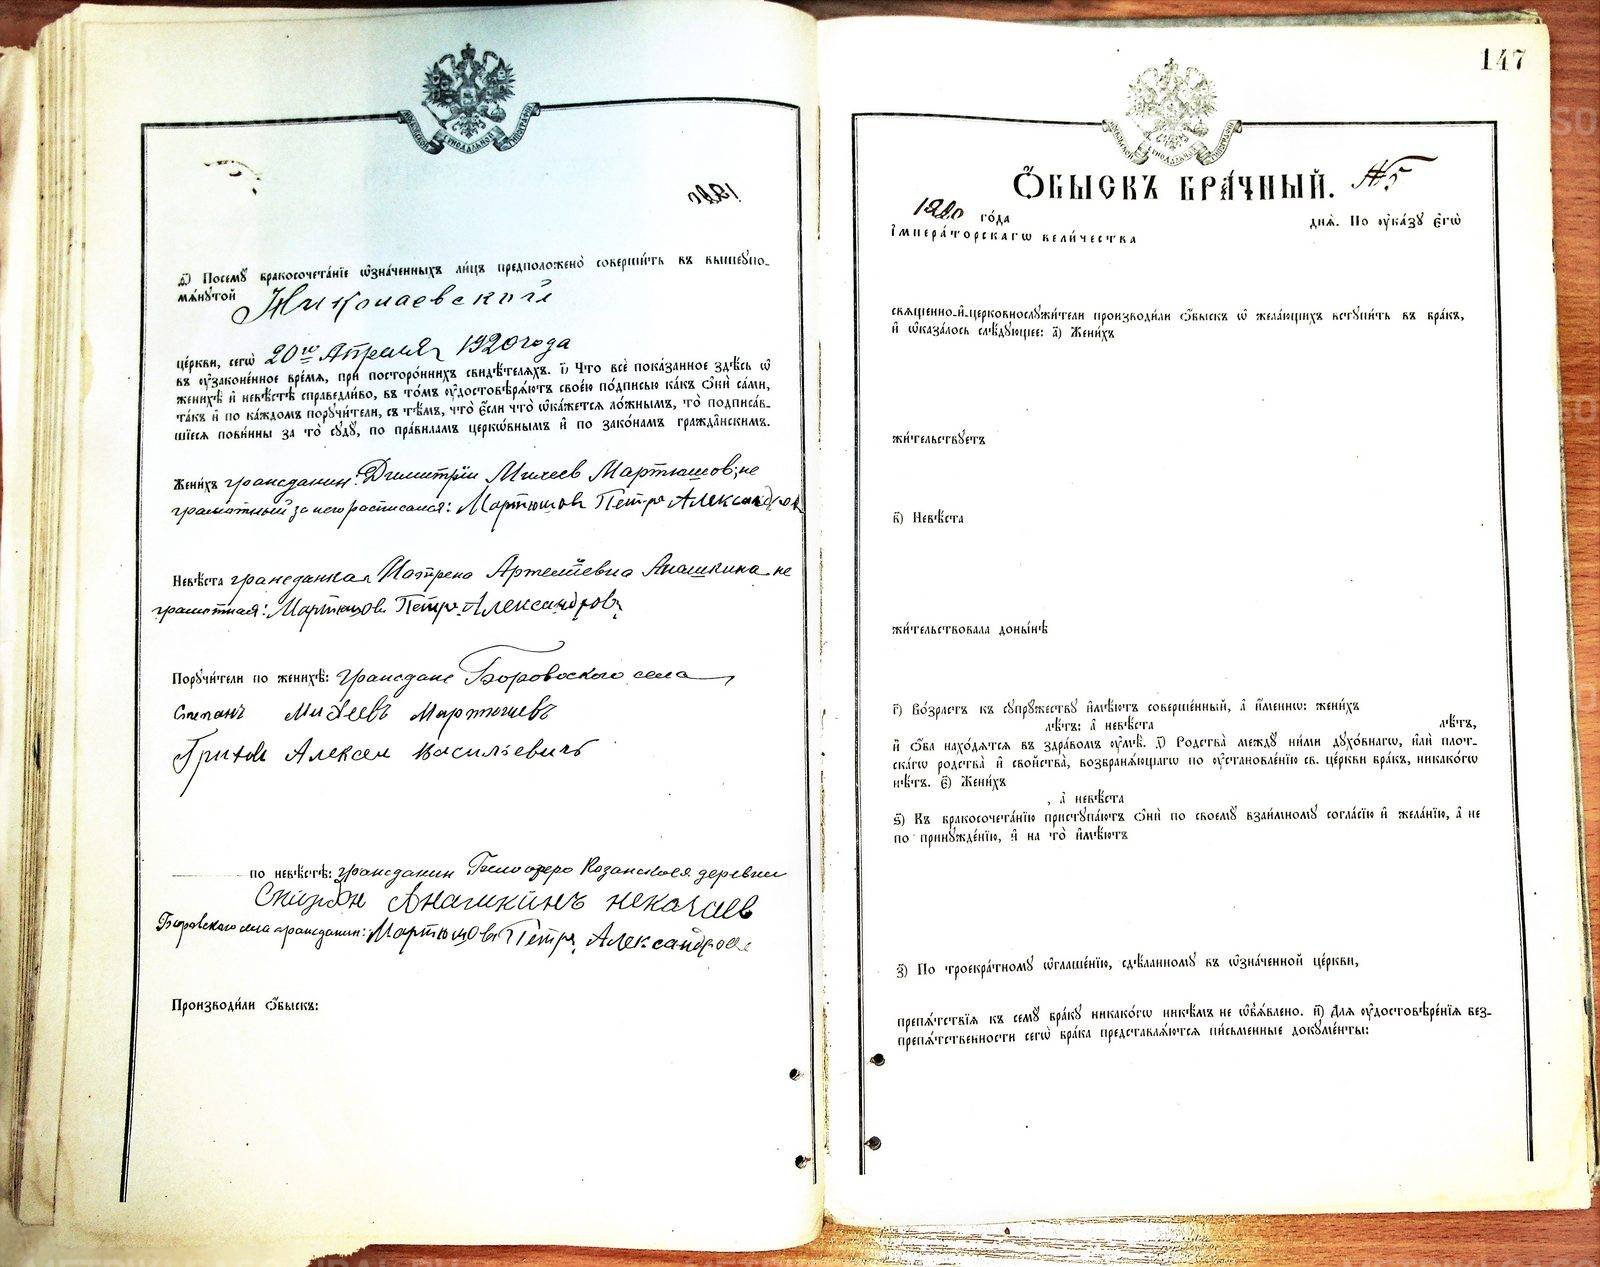 ѳ) Посемꙋ бракосочета́нїе ѡ҆зна́ченныхъ ли́цъ предположено̀ соверши́ть въ вышеꙋпо-
мѧ́нꙋтой Николаевской
це́ркви, сегѡ̀ 20го Апреля 1920 года
въ ᲂу҆зако́ненное вре́мѧ, при посторо́ннихъ свидѣ́телѧхъ. і҃) Что̀ всѐ пока́занное здѣ́сь ѡ҆
женихѣ̀ и҆ невѣ́стѣ справедли́во, въ то́мъ ᲂу҆достовѣрѧ́ютъ свое́ю по́дписью ка́къ ѻ҆нѝ са́ми,
та́къ и҆ по ка́ждомъ порꙋчи́тели, съ тѣ́мъ, что̀ є҆́сли что̀ ѡ҆ка́жетсѧ ло́жнымъ, то̀ подписа́в-
шїесѧ пови́нны за то̀ сꙋдꙋ̀, по пра́виламъ церко́внымъ и҆ по зако́намъ гражда́нскимъ.
Жени́хъ гражданин: Димитрiй Михеев Мартюшов; не
грамотный за него расписался: Мартюшов Петръ Александров
Невѣ́ста гражданка Матрена Артемiевна Анашкина не
грамотная: Мартюшов Петръ Александровъ
Порꙋчи́тели по женихѣ̀: граждане Боровского села
Степанъ Михеевъ Мартюшевъ
Алексеи Васильевичъ
по невѣ́стѣ: гражданин Козанская деревни
Анашкинъ
Боровского села гражданин: Мартюшовъ Петръ Александров
Производи́ли ѻ҆́быскъ:
147
Ѻ҆́быскъ бра́чный. №5
1920 го́да дня̀. По ᲂу҆ка́зꙋ є҆гѡ̀
і҆мпера́торскагѡ вели́чества
свѧще́нно-и҆-церковнослꙋжи́тели производи́ли ѻ҆́быскъ ѡ҆ жела́ющихъ встꙋпи́ть въ бра́къ,
и҆ ѡ҆каза́лось слѣ́дꙋющее: а҃) Жени́хъ
жи́тельствꙋетъ
в҃) Невѣ́ста
жи́тельствовала доны́нѣ
г҃) Во́зрастъ къ сꙋпрꙋ́жествꙋ и҆мѣ́ютъ соверше́нный, а҆ и҆́менно: жени́хъ
лѣ́тъ: а҆ невѣ́ста лѣ́тъ,
и҆ ѻ҆́ба нахо́дѧтсѧ въ здра́вомъ ᲂу҆мѣ̀. д҃) Родства̀ междꙋ ни́ми дꙋхо́внагѡ, и҆лѝ плот-
ска́гѡ родства̀ и҆ сво́йства, возбранѧ́ющагѡ по ᲂу҆становле́нїю св. це́ркви бра́къ, никако́гѡ
нѣ́тъ. є҃) Жени́хъ
, а҆ невѣ́ста
ѕ҃) Къ бракосочета́нїю пристꙋпа́ютъ ѻ҆нѝ по своемꙋ̀ взаи́мномꙋ согла́сїю и҆ жела́нїю, а҆ не
по принꙋжде́нїю, и҆ на то̀ и҆мѣ́ютъ
з҃) По троекра́тномꙋ ѡ҆глаше́нїю, сдѣ́ланномꙋ въ ѡ҆зна́ченной це́ркви,
препѧ́тствїѧ къ семꙋ̀ бра́кꙋ никако́гѡ никѣ́мъ не ѡ҆б̾ѧ́влено. и҃) Длѧ ᲂу҆достовѣре́нїѧ без-
препѧ́тственности сегѡ̀ бра́ка представлѧ́ютсѧ пи́сьменные докꙋме́нты: